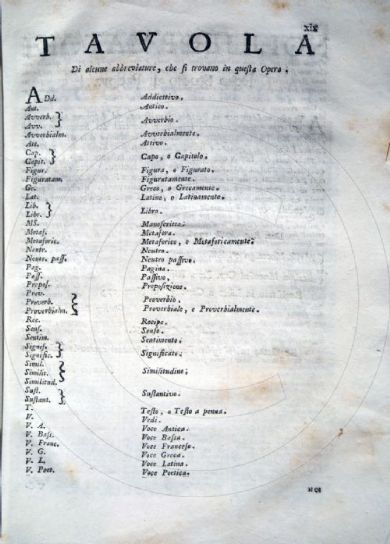 xix
TAVOLA
Di alcune abbreviature, che si trovano in questa Opera.
ADd. Addiettivo.
Ant. Antico.
Avverb. }
Avv. } Avverbio.
Avverbialm. Avverbialmente.
Att. Attivo.
Cap. }
Capit. } Capo, o Capitolo.
Figur. Figura, o Figurato.
Figuratam. Figuratamente.
Gr. Greco, o Grecamente.
Lat. Latino, o Latinamente.
Lib. }
Libr. } Libro.
MS. Manoscritto.
Metaf. Metafora.
Metaforic. Metaforico, o Metaforicamente.
Neutr. Neutro.
Neutr. pass. Neutro passivo.
Pag. Pagina.
Pass. Passivo.
Propos. Proposizione.
Prov. }
Proverb. } Proverbio.
Proverbialm. } Proverbiale, e Proverbialmente.
Rec. Recipe.
Sens. Senso.
Sentim. Sentimento.
Signif. }
Signific. } Significato.
Simil. }
Similit. } Similitudine.
Similitud. }
Sust. }
Sustant. } Sustantivo.
T. Testo, o Testo a penna.
V. Vedi.
V. A. Voce Antica.
V. Bass. Voce Bassa.
V. Franc. Voce Francese.
V. G. Voce Greca.
V. L. Voce Latina.
V. Poet. Voce Poetica.